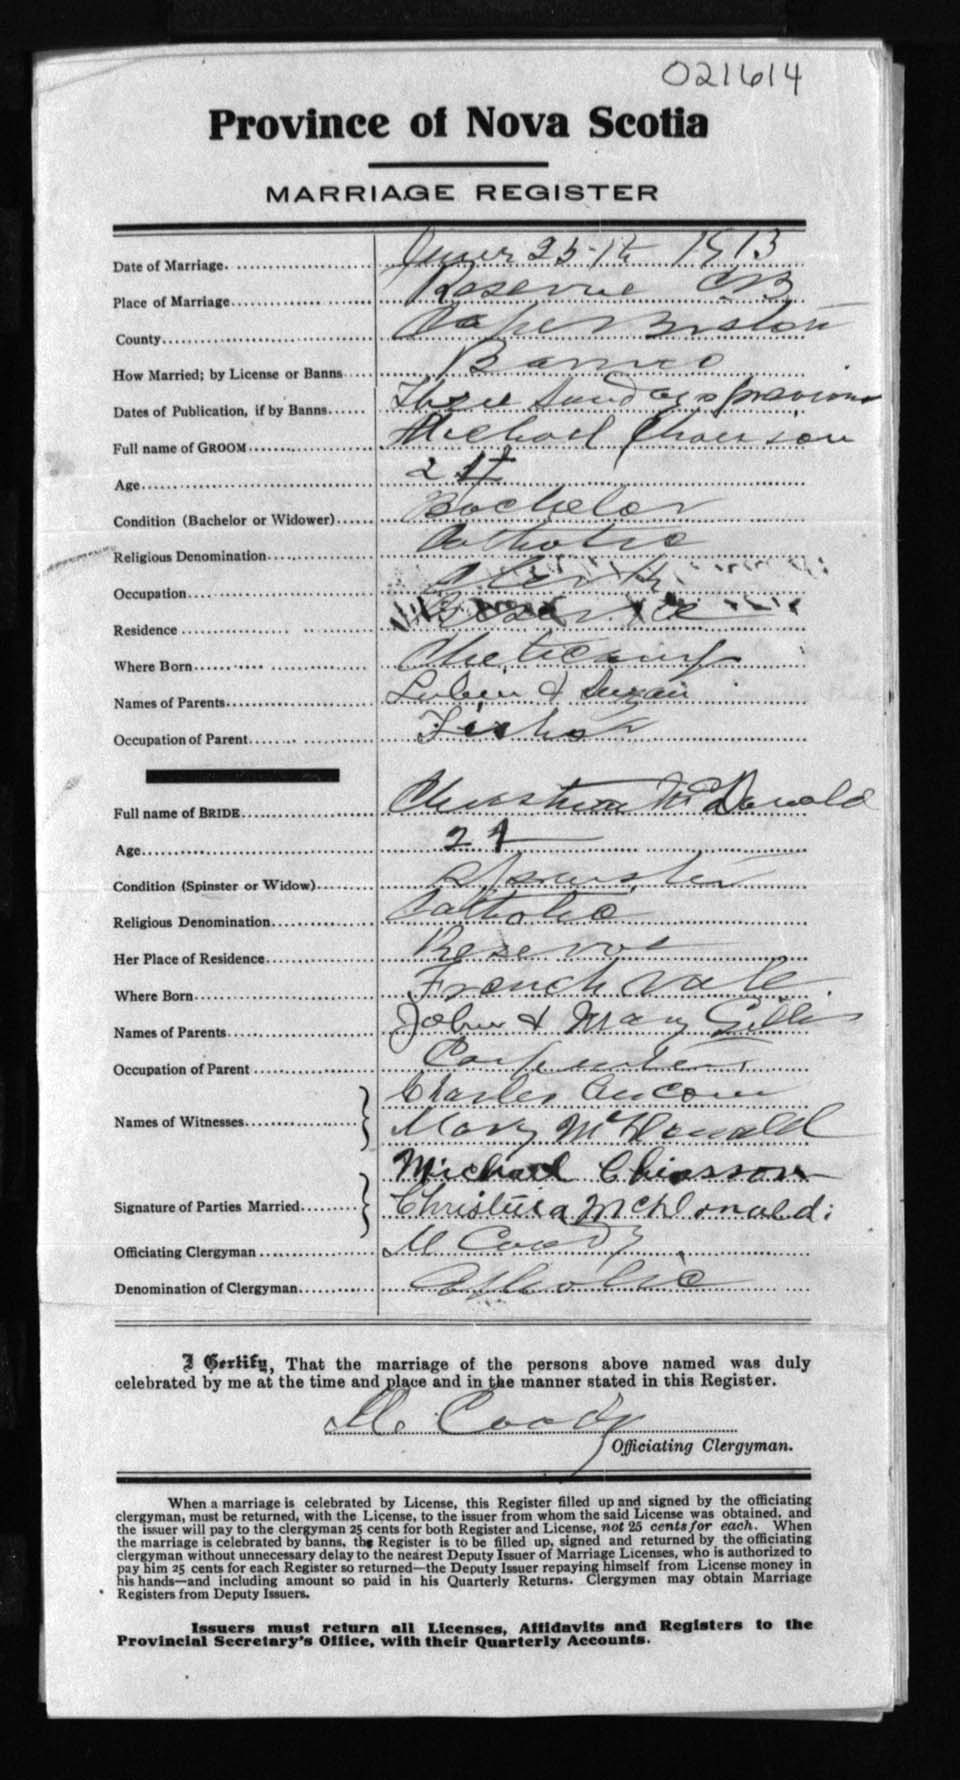 021614
Province of Nova Scotia
MARRIAGE REGISTER
Date of Marriage 25th 1913
Place of Marriage Reserve C.B
County Cape Breton
How Married; by License or Banns Banns
Dates of Publication, if by Banns Three Sundays previous
Full name of GROOM Michael Chiasson
Age 24
Condition (Bachelor or Widower) Bachelor
Religious Denomination Catholic
Occupation Clerk
Residence Reserve
Where Born Cheticamp
Names of Parents Lubin & Suzan
Occupation of Parent Fisher
Full name of BRIDE Christina McDonald
Age 24
Condition (Spinster or Widow) Spinster
Religious Denomination Catholic
Her Place of Residence Reserve
Where Born French vale
Names of Parents John & Mary Gillis
Occupation of Parent Carpenter
Names of Witnesses Charles Aucoin
Mary McDonald
Signature of Parties Married Michael Chiasson
Christina McDonald
Officiating Clergyman M Coady
Denomination of Clergyman Catholic
I Certify, That the marriage of the persons above named was duly
celebrated by me at the time and place and in the manner stated in this Register.
M. Coady
Officiating Clergyman.
When a marriage is celebrated by License, this Register filled up and signed by the officiating
clergyman, must be returned, with the License, to the issuer from whom the said License was obtained, and
the issuer will pay to the clergyman 25 cents for both Register and License, not 25 cents for each. When
the marriage is celebrated by banns, the Register is to be filled up, signed and returned by the officiating
clergyman without unnecessary delay to the nearest Deputy Issuer of Marriage Licenses, who is authorized to
pay him 25 cents for each Register so returned—the Deputy Issuer repaying himself from License money in
his hands—and including amount so paid in his Quarterly Returns. Clergymen may obtain Marriage
Registers from Deputy Issuers.
Issuers must return all Licenses, Affidavits and Registers to the
Provincial Secretary's Office, with their Quarterly Accounts.